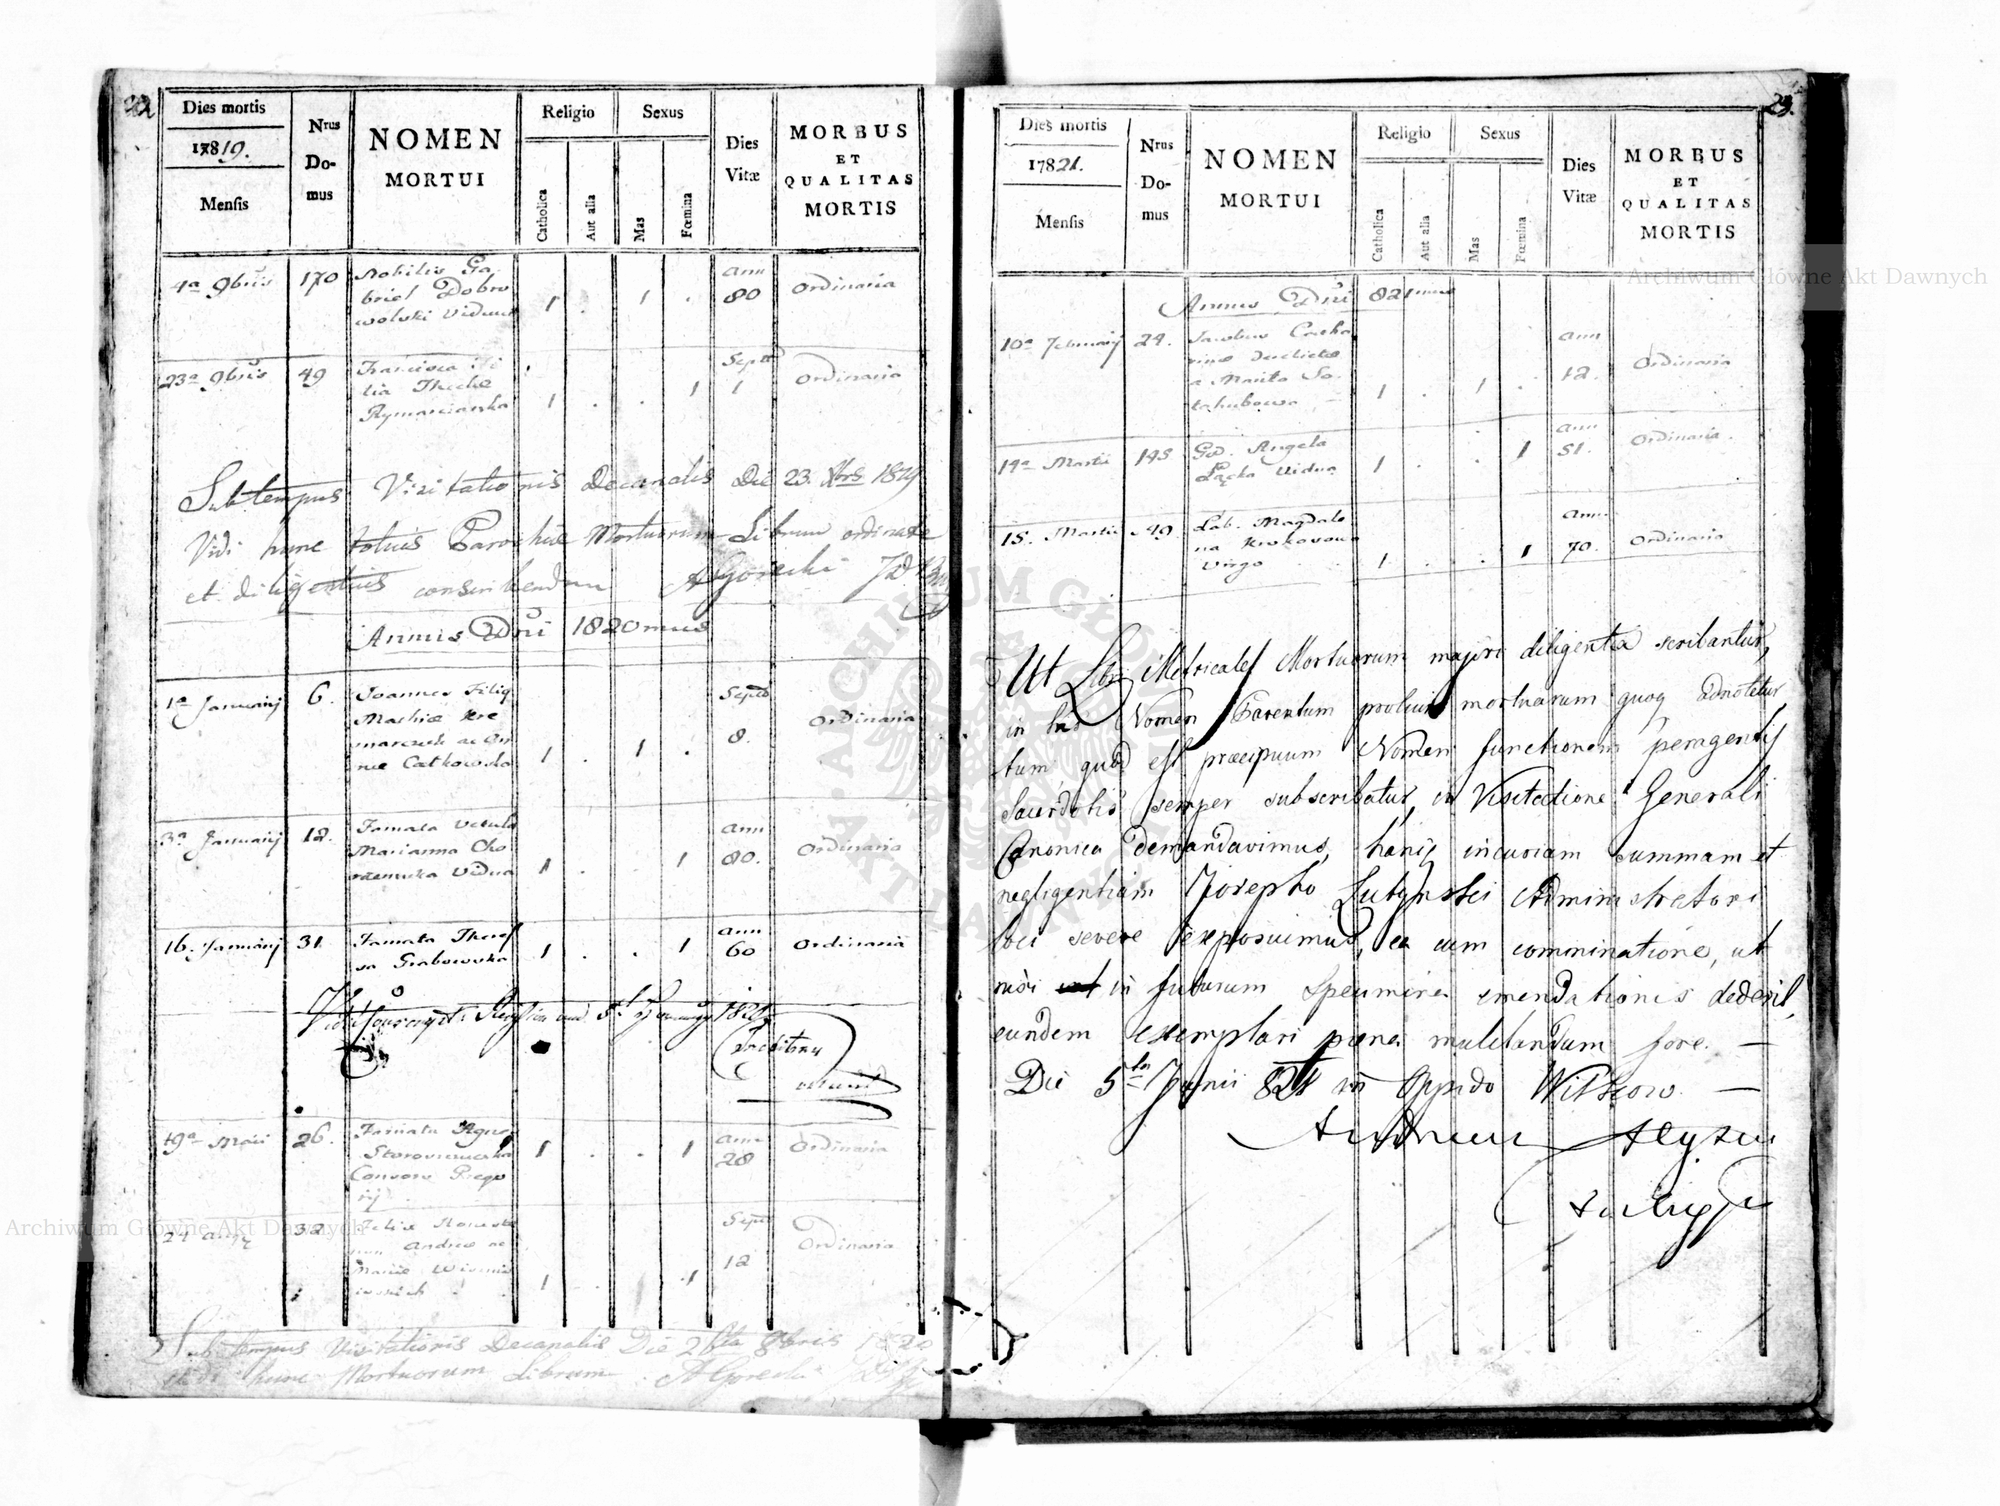 22
Dies mortis
17819.
Mensis
Nrus
Do-
mus
NOMEN
MORTUI
Religio
Catholica
Aut alia
Sexus
Mas
Fœmina
Dies
Vitæ
MORBUS
ET
QUALITAS
MORTIS
4ta 9bris 170 Nobilis Ga
briel Dobro
wolski Viduus 1 . 1 . ann
80 Ordinaria
23a 9bris 49 Francisca fi
lia Theclæ
Rymarciarska 1 . . 1 Septi
1 Ordinaria
Sub tempus Visitationis Decanalis Die 23. Xbris 1819
Vidi hunc totius Parochiæ Mortuorum Librum ordinate
et diligentius conscribendum AGorecki
Annus Dñi 1820mus
1a Januarij 6. Joannes Filiq
Mathiæ Kre
marczuk ac An
næ Catkowska 1 . 1 . Septi
8. Ordinaria
3a Januarij 12. Famata Vetula
Marianna Cho
rzemska Vidua 1 . . 1 ann
80. Ordinaria
16. Januarij 31. Famata There
sa Grabowska 1 . . 1 ann
60 Ordinaria
19a Maii 26. Famata Agnes
Conson Grego
rij 1 . . 1 ann
28 Ordinaria
32 Felix
Andreæ ac
Mariæ 1 . . 1 Septi
12 Ordinaria
Sub tempus Visitationis Decanalis Die 8bris 1820
Vidi hunc Mortuorum Librum AGorecki
23.
Dies mortis
17821.
Mensis
Nrus
Do-
mus
NOMEN
MORTUI
Religio
Catholica
Aut alia
Sexus
Mas
Fœmina
Dies
Vitæ
MORBUS
ET
QUALITAS
MORTIS
Annus Dñi 821mus
10a Februarij 24. Jacobus
relicta
a Marito
1 . 1 . ann
12. Ordinaria
14a Martii 145 Gd. Angela
Łącka Vidua 1 . . 1 ann
51. Ordinaria.
15. Martii 49. Lab. Magdale
na Krokosowa
Virgo 1 . . 1 ann.
70. Ordinaria
Ut Libri Metricales Mortuorum majori diligentia scribantur,
in his Nomen Parentum prolium mortuarum quoq adnotetur
tum quod est præcipuum Nomen functionem peragentis
Sacerdotis semper subscribatur, in Visitatione Generali
Canonica demandavimus, hanc incuriam summam et
negligentiam Josepho Lutynski Administratori
loci severe exposuimus, ea cum comminatione, ut
nisi in futurum Specimina emendationis dederit,
eundem exemplari pœna mulctandum fore. —
Die 5ta Junii 821 in Oppido Witkow. —
Archiwum Główne Akt Dawnych
Archiwum Główne Akt Dawnych
ARCHIWUM GŁÓWNE AKT DAWNYCH